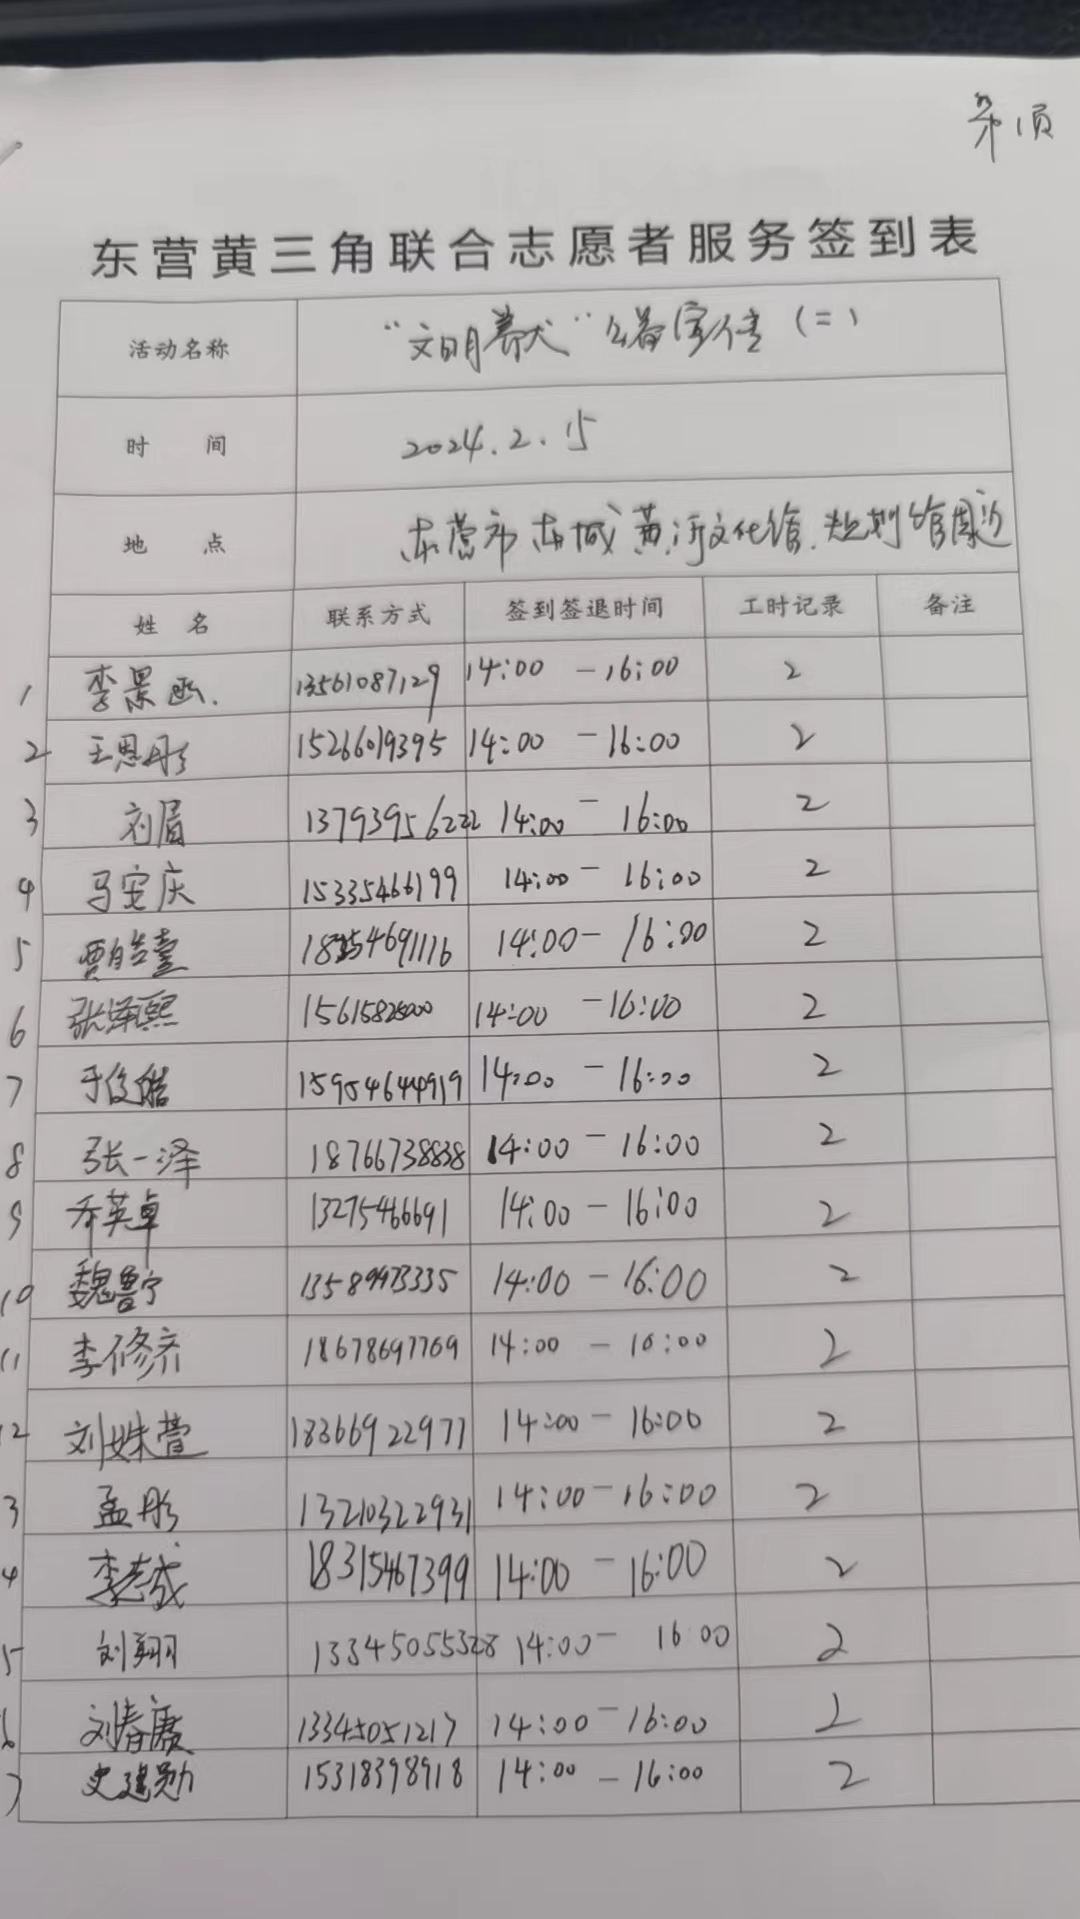 第1页
东营黄三角联合志愿者服务签到表
活动名称 “文明养犬”公益宣传（二）
时 间 2024.2.15
地 点 东营市东城黄河文化馆.规划馆周边
姓 名 联系方式 签到签退时间 工时记录 备注
1 李景函. 13561087129 14:00 -16:00 2
2 王恩彤 15266019395 14:00 -16:00 2
3 刘眉 13793956222 14:00 - 16:00 2
4 马安庆 15335466199 14:00 - 16:00 2
5 贾皓 14:00 - 16:00 2
6 张泽熙 14:00 -16:00 2
7 于俊皓 15954644919 14:00 - 16:00 2
8 张一泽 18766738838 14:00 - 16:00 2
9 乔英卓 13275466691 14:00 - 16:00 2
10 魏鲁宁 13589973335 14:00 - 16:00 2
11 李修齐 18678697769 14:00 - 16:00 2
12 刘姝萱 18366922977 14:00 - 16:00 2
3 孟彤 13210322931 14:00 - 16:00 2
4 李志成 18315467399 14:00 - 16:00 2
5 刘翔 13345055328 14:00 - 16 00 2
6 刘春 13345051217 14:00 - 16:00 2
7 史建勋 15318398918 14:00 - 16:00 2